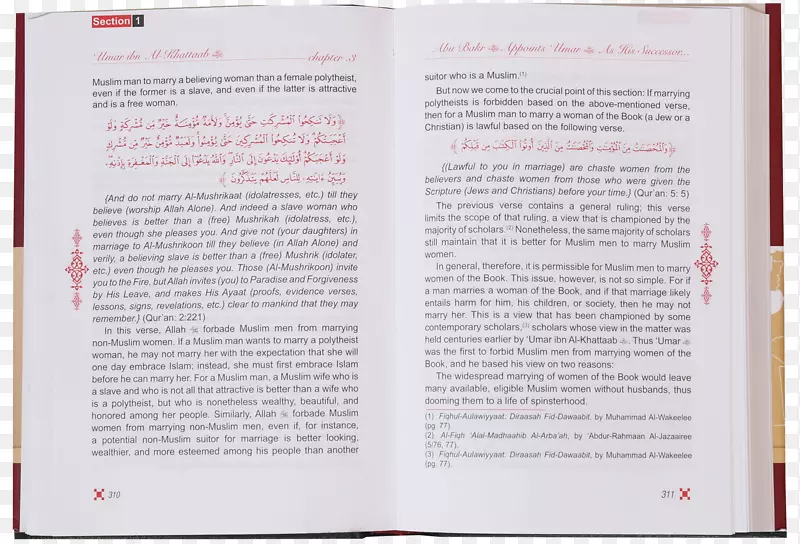 Section 1
'Umar ibn Al-Khattaab chapter 3
Muslim man to marry a believing woman than a female polytheist,
even if the former is a slave, and even if the latter is attractive
and is a free woman.
﴿ وَلَا تَنكِحُوا الْمُشْرِكَتِ حَتَّى يُؤْمِنَّ وَلَأَمَةٌ مُؤْمِنَةٌ خَيْرٌ مِّن مُّشْرِكَةٍ وَلَوْ
أَعْجَبَتْكُمْ وَلَا تُنكِحُوا الْمُشْرِكِينَ حَتَّى يُؤْمِنُوا وَلَعَبْدٌ مُّؤْمِنٌ خَيْرٌ مِّن مُّشْرِكٍ
وَلَوْ أَعْجَبَكُمْ أُوْلَئِكَ يَدْعُونَ إِلَى النَّارِ وَاللَّهُ يَدْعُوا إِلَى الْجَنَّةِ وَالْمَغْفِرَةِ بِإِذْنِهِ
وَيُبَيِّنُ ءَايَتِهِ لِلنَّاسِ لَعَلَّهُمْ يَتَذَكَّرُونَ ﴾
{And do not marry Al-Mushrikaat (idolatresses, etc.) till they
believe (worship Allah Alone). And indeed a slave woman who
believes is better than a (free) Mushrikah (idolatress, etc.),
even though she pleases you. And give not (your daughters) in
marriage to Al-Mushrikoon till they believe (in Allah Alone) and
verily, a believing slave is better than a (free) Mushrik (idolater,
etc.) even though he pleases you. Those (Al-Mushrikoon) invite
you to the Fire, but Allah invites (you) to Paradise and Forgiveness
by His Leave, and makes His Ayaat (proofs, evidence verses,
lessons, signs, revelations, etc.) clear to mankind that they may
remember.} (Qur'an: 2:221)
In this verse, Allah forbade Muslim men from marrying
non-Muslim women. If a Muslim man wants to marry a polytheist
woman, he may not marry her with the expectation that she will
one day embrace Islam; instead, she must first embrace Islam
before he can marry her. For a Muslim man, a Muslim wife who is
a slave and who is not all that attractive is better than a wife who
is a polytheist, but who is nonetheless wealthy, beautiful, and
honored among her people. Similarly, Allah forbade Muslim
women from marrying non-Muslim men, even if, for instance,
a potential non-Muslim suitor for marriage is better looking,
wealthier, and more esteemed among his people than another
310
Abu Bakr Appoints 'Umar As His Successor...
suitor who is a Muslim.(1)
But now we come to the crucial point of this section: If marrying
polytheists is forbidden based on the above-mentioned verse,
then for a Muslim man to marry a woman of the Book (a Jew or a
Christian) is lawful based on the following verse.
﴿ وَالْمُحْصَنَتُ مِنَ الْمُؤْمِنَتِ وَالْمُحْصَنَتُ مِنَ الَّذِينَ أُوتُوا الْكِتَبَ مِن قَبْلِكُمْ ﴾
{(Lawful to you in marriage) are chaste women from the
believers and chaste women from those who were given the
Scripture (Jews and Christians) before your time.} (Qur'an: 5: 5)
The previous verse contains a general ruling; this verse
limits the scope of that ruling, a view that is championed by the
majority of scholars.(2) Nonetheless, the same majority of scholars
still maintain that it is better for Muslim men to marry Muslim
women.
In general, therefore, it is permissible for Muslim men to marry
women of the Book. This issue, however, is not so simple. For if
a man marries a woman of the Book, and if that marriage likely
entails harm for him, his children, or society, then he may not
marry her. This is a view that has been championed by some
contemporary scholars,(3) scholars whose view in the matter was
held centuries earlier by 'Umar ibn Al-Khattaab . Thus 'Umar
was the first to forbid Muslim men from marrying women of the
Book, and he based his view on two reasons:
The widespread marrying of women of the Book would leave
many available, eligible Muslim women without husbands, thus
dooming them to a life of spinsterhood.
(1) Fiqhul-Aulawiyyaat: Diraasah Fid-Dawaabit, by Muhammad Al-Wakeelee
(pg. 77).
(2) Al-Fiqh 'Alal-Madhaahib Al-Arba'ah, by 'Abdur-Rahmaan Al-Jazaairee
(5/76, 77).
(3) Fiqhul-Aulawiyyaat: Diraasah Fid-Dawaabit, by Muhammad Al-Wakeelee
(pg. 77).
311